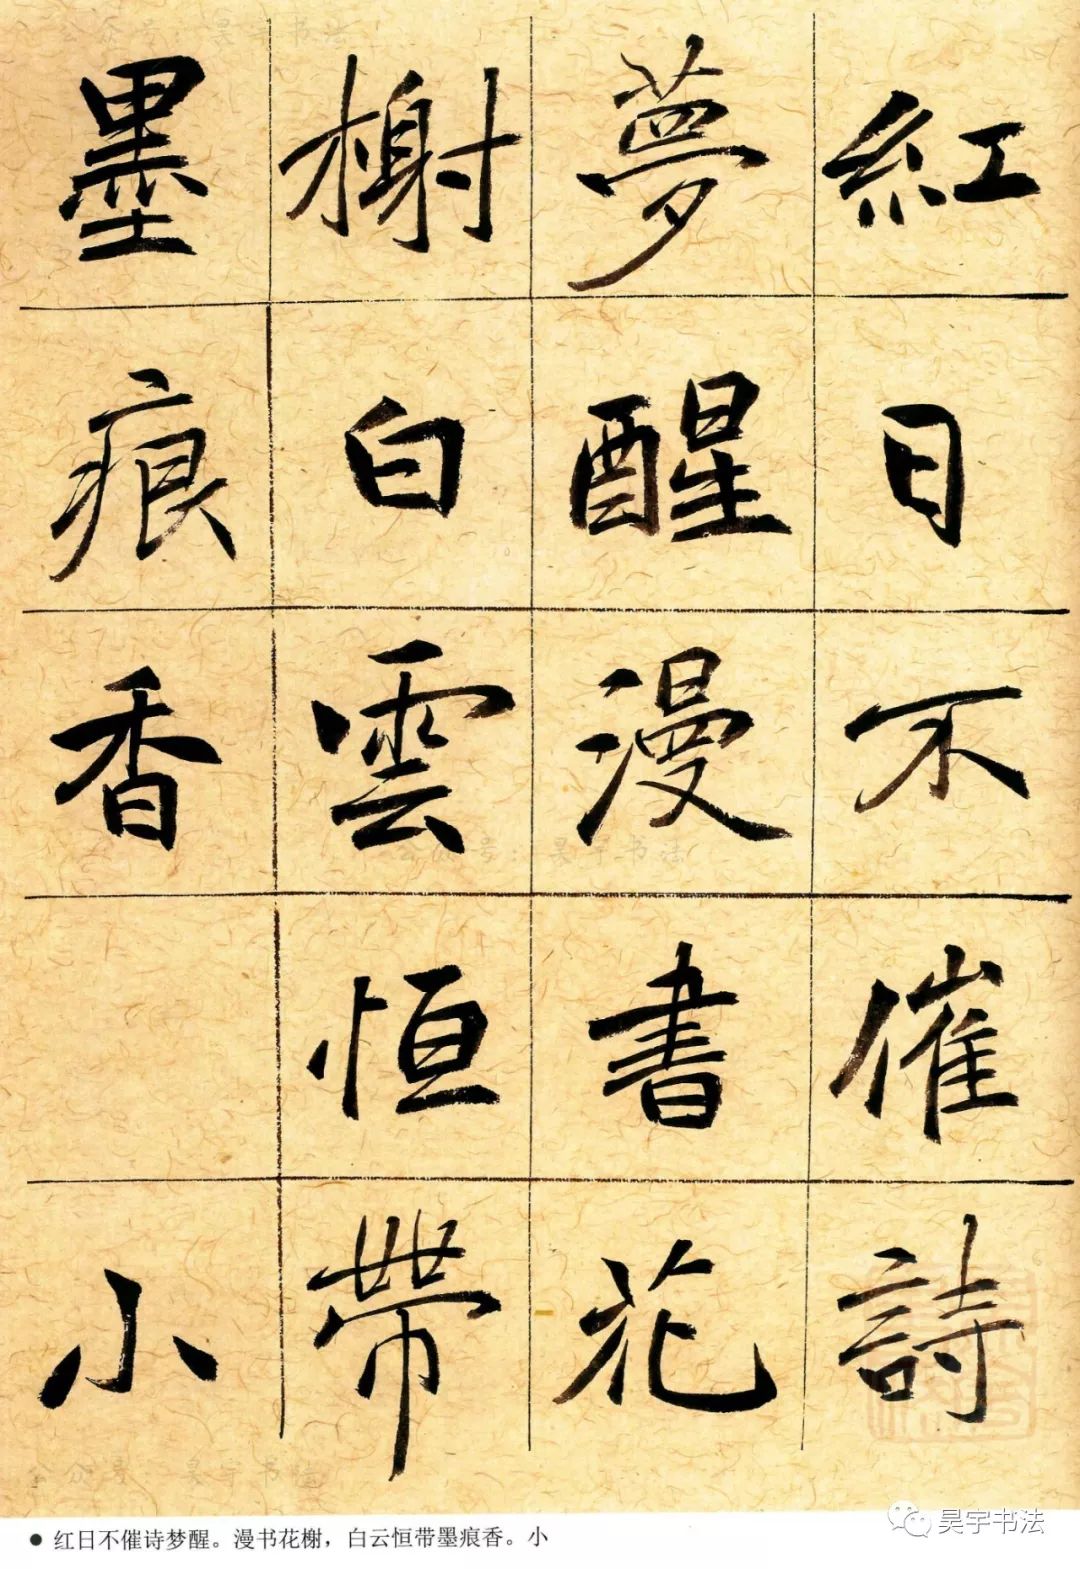 紅日不催詩
夢醒漫書花
榭白雲恒帶
墨痕香 小
公众号：昊宇书法
公众号：昊宇书法
公众号：昊宇书法
昊宇书法
● 红日不催诗梦醒。漫书花榭，白云恒带墨痕香。小